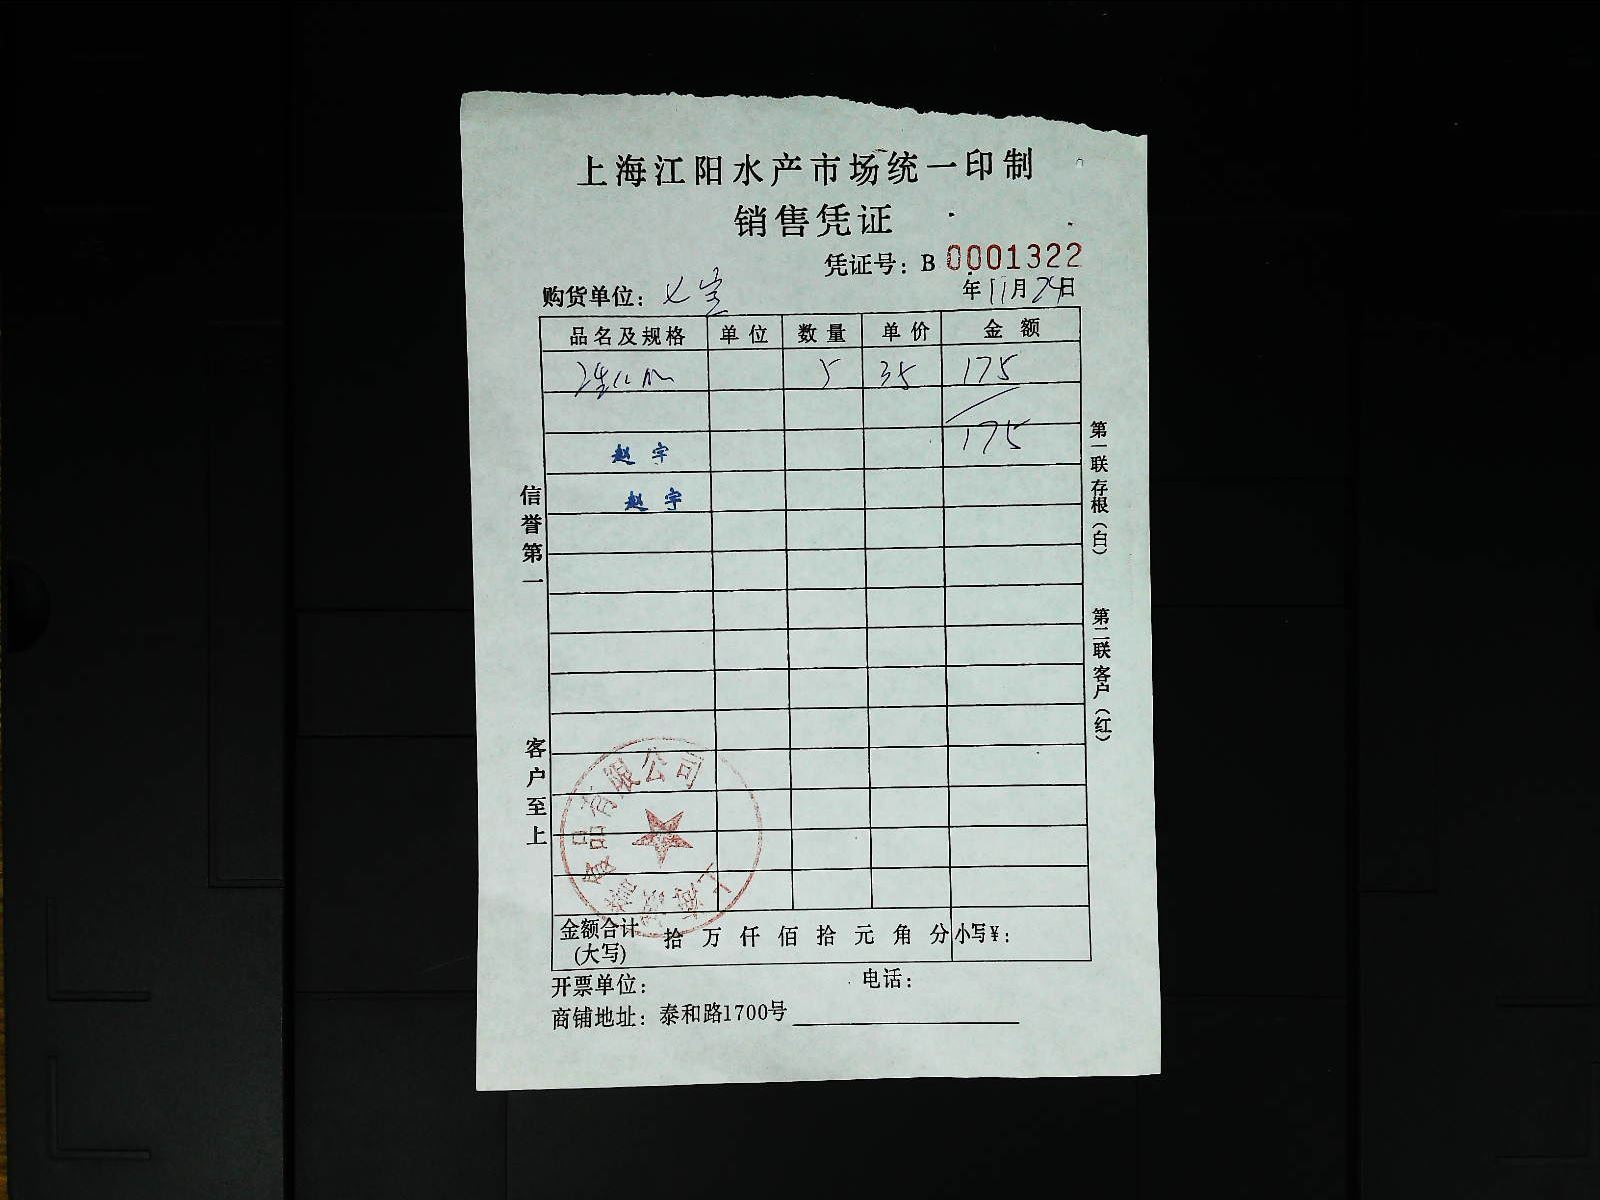 上海江阳水产市场统一印制
销售凭证
凭证号：B 0001322
购货单位：七宝 年11月24日
品名及规格 单位 数量 单价 金额
5 35 175
175
赵宇
赵宇
信誉第一
客户至上
第一联存根（白）
第二联客户（红）
金额合计(大写) 拾万仟佰拾元角分 小写¥：
开票单位： 电话：
商铺地址：泰和路1700号
食品有限公司
上海